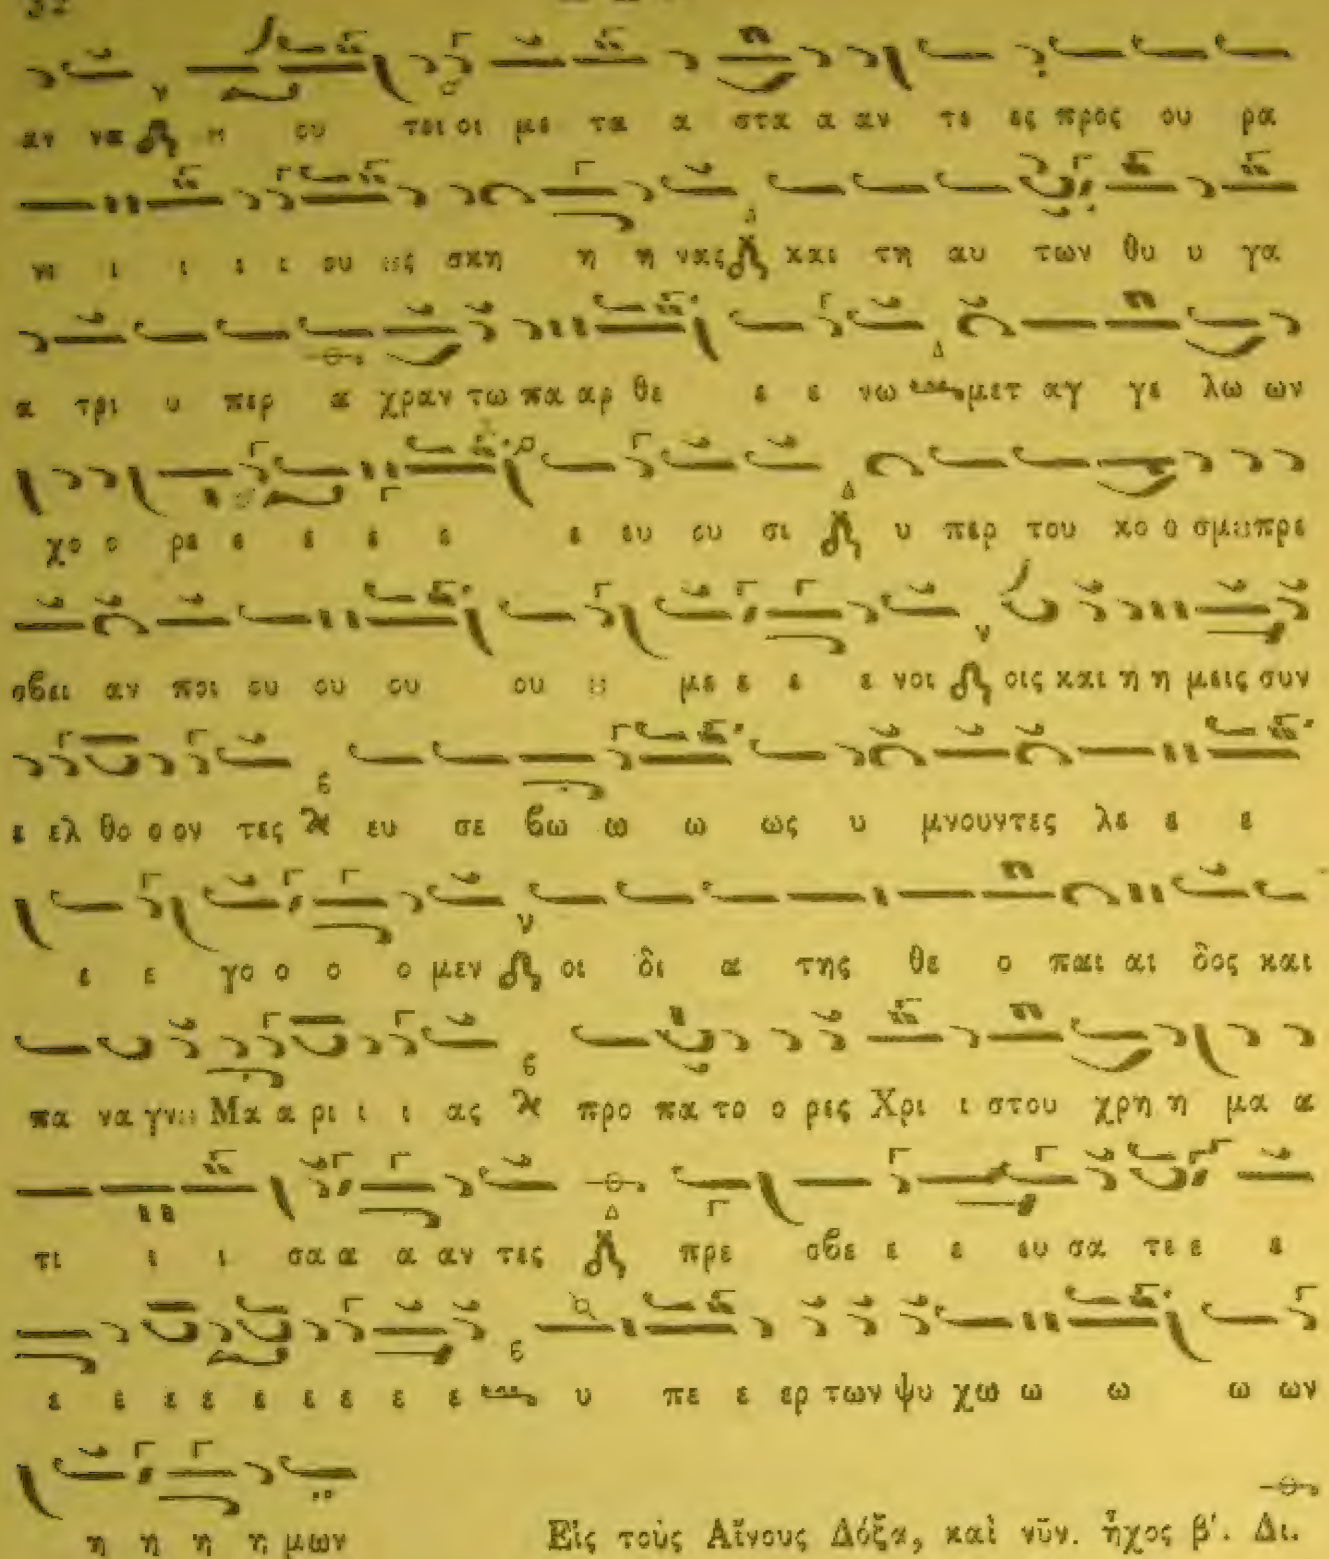 32
αν να ȣ ου τοι οι με τα α στα α αν τε ες προς ου ρα
νι ι ι ι ι ου ȣς σκη η η νας και τη αυ των θυ υ γα
α τρι υ περ α χραν τω πα αρ θε ε ε νω μετ αγ γε λω ων
χο ο ρε ε ε ε ε ε ευ ου σι υ περ του κο ο σμȣ πρε
σβει αν ποι ου ου ου ου ȣ με ε ε ε νοι οις και η η μεις συν
ε ελ θο ο ον τες ευ σε βω ω ω ως υ μνουντες λε ε ε
ε ε γο ο ο ο μεν οι δι α της θε ο παι αι δος και
πα να γνȣ Μα α ρι ι ι ας προ πα το ο ρες Χρι ι στου χρη η μα α
τι ι ι σα α α αν τες πρε σβε ε ε ευ σα τε ε ε
ε ε ε ε ε ε ε ε ε υ πε ε ερ των ψυ χω ω ω ω ων
η η η η μων
Εἰς τοὺς Αἴνους Δόξα, καὶ νῦν. ἦχος β'. Δι.